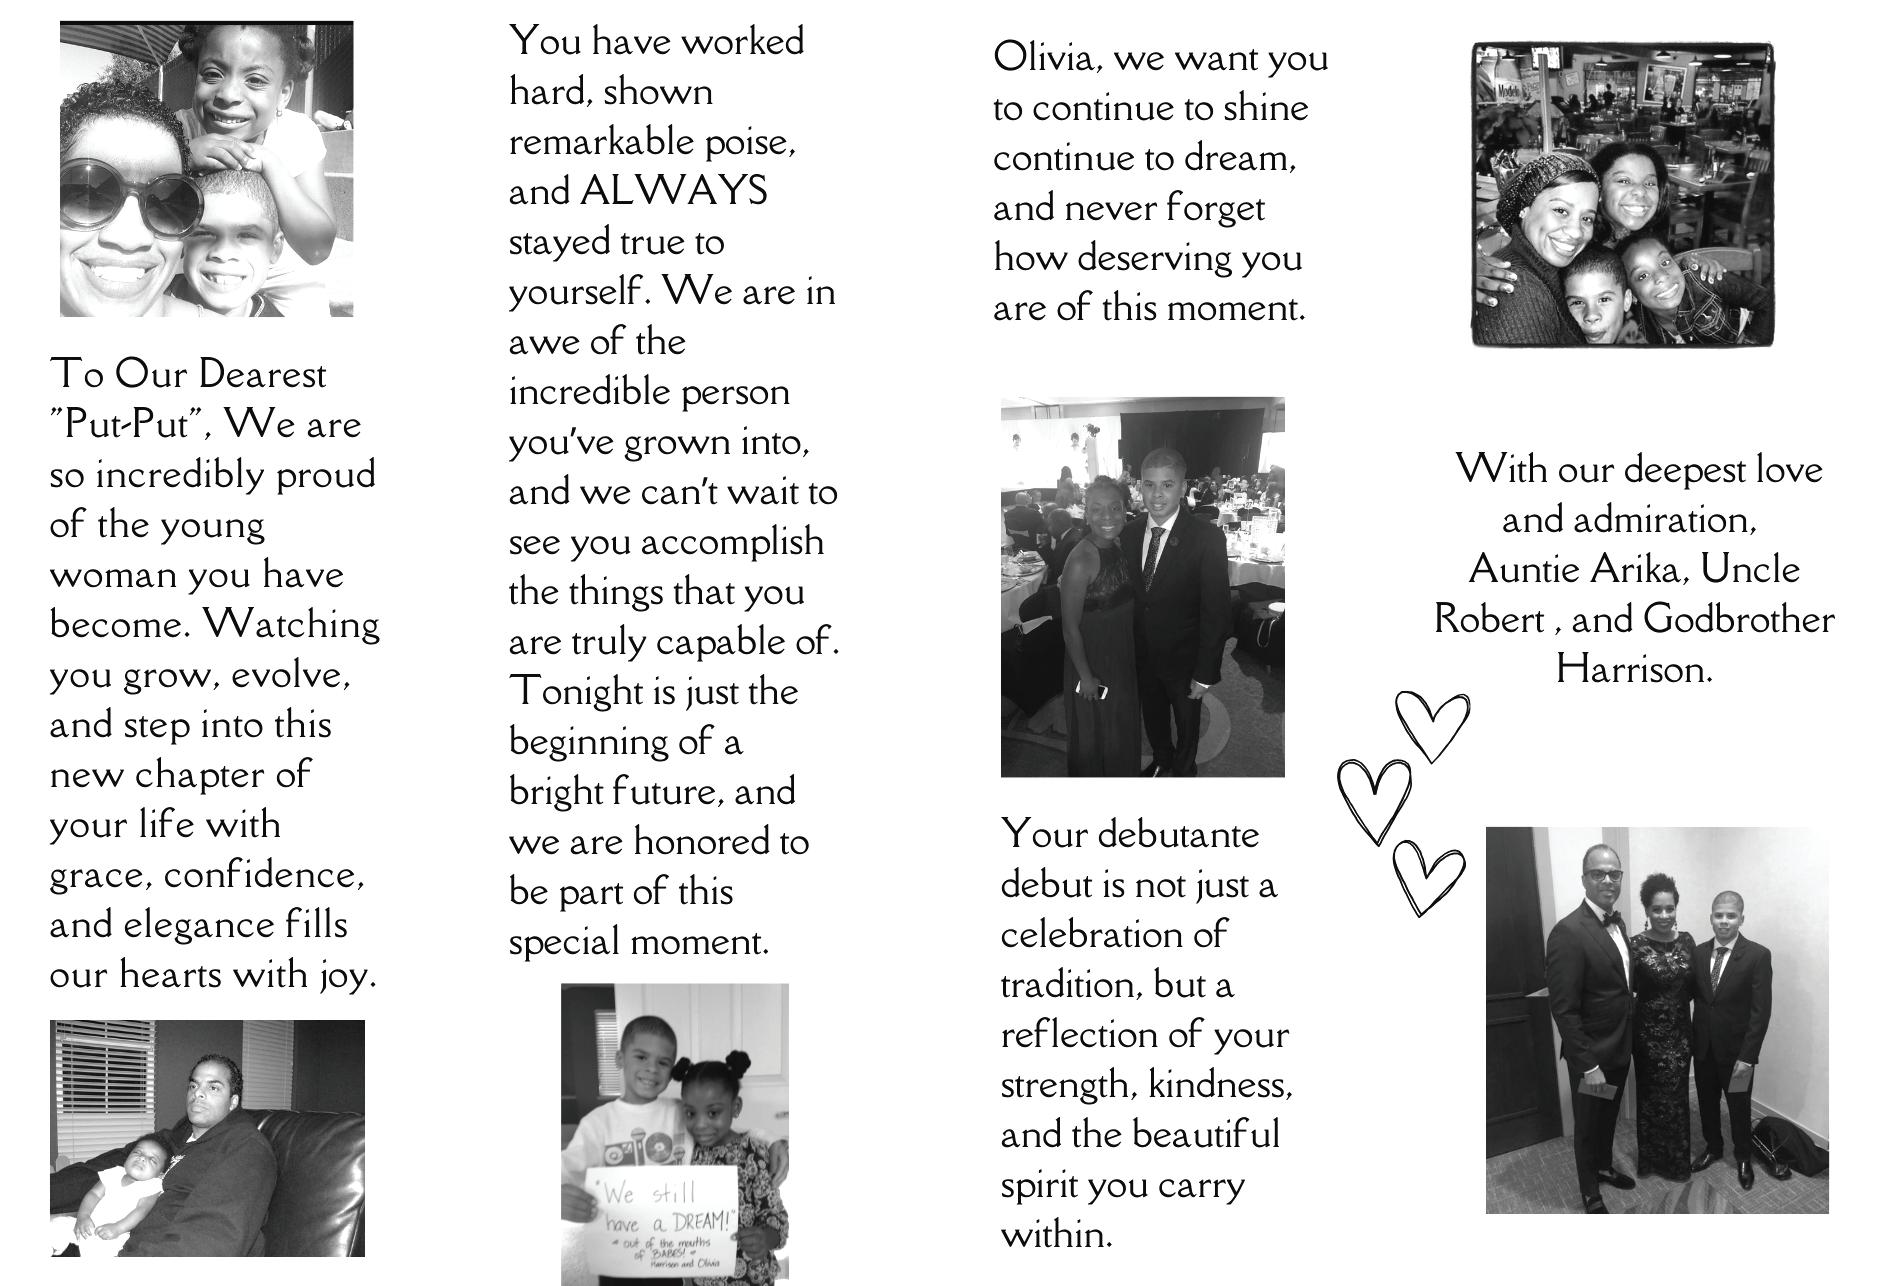 To Our Dearest
"Put-Put", We are
so incredibly proud
of the young
woman you have
become. Watching
you grow, evolve,
and step into this
new chapter of
your life with
grace, confidence,
and elegance fills
our hearts with joy.
You have worked
hard, shown
remarkable poise,
and ALWAYS
stayed true to
yourself. We are in
awe of the
incredible person
you've grown into,
and we can't wait to
see you accomplish
the things that you
are truly capable of.
Tonight is just the
beginning of a
bright future, and
we are honored to
be part of this
special moment.
"We still
have a DREAM!"
out of the mouths
of BABES!
Harrison and Olivia
Olivia, we want you
to continue to shine
continue to dream,
and never forget
how deserving you
are of this moment.
Your debutante
debut is not just a
celebration of
tradition, but a
reflection of your
strength, kindness,
and the beautiful
spirit you carry
within.
Modelo
With our deepest love
and admiration,
Auntie Arika, Uncle
Robert , and Godbrother
Harrison.